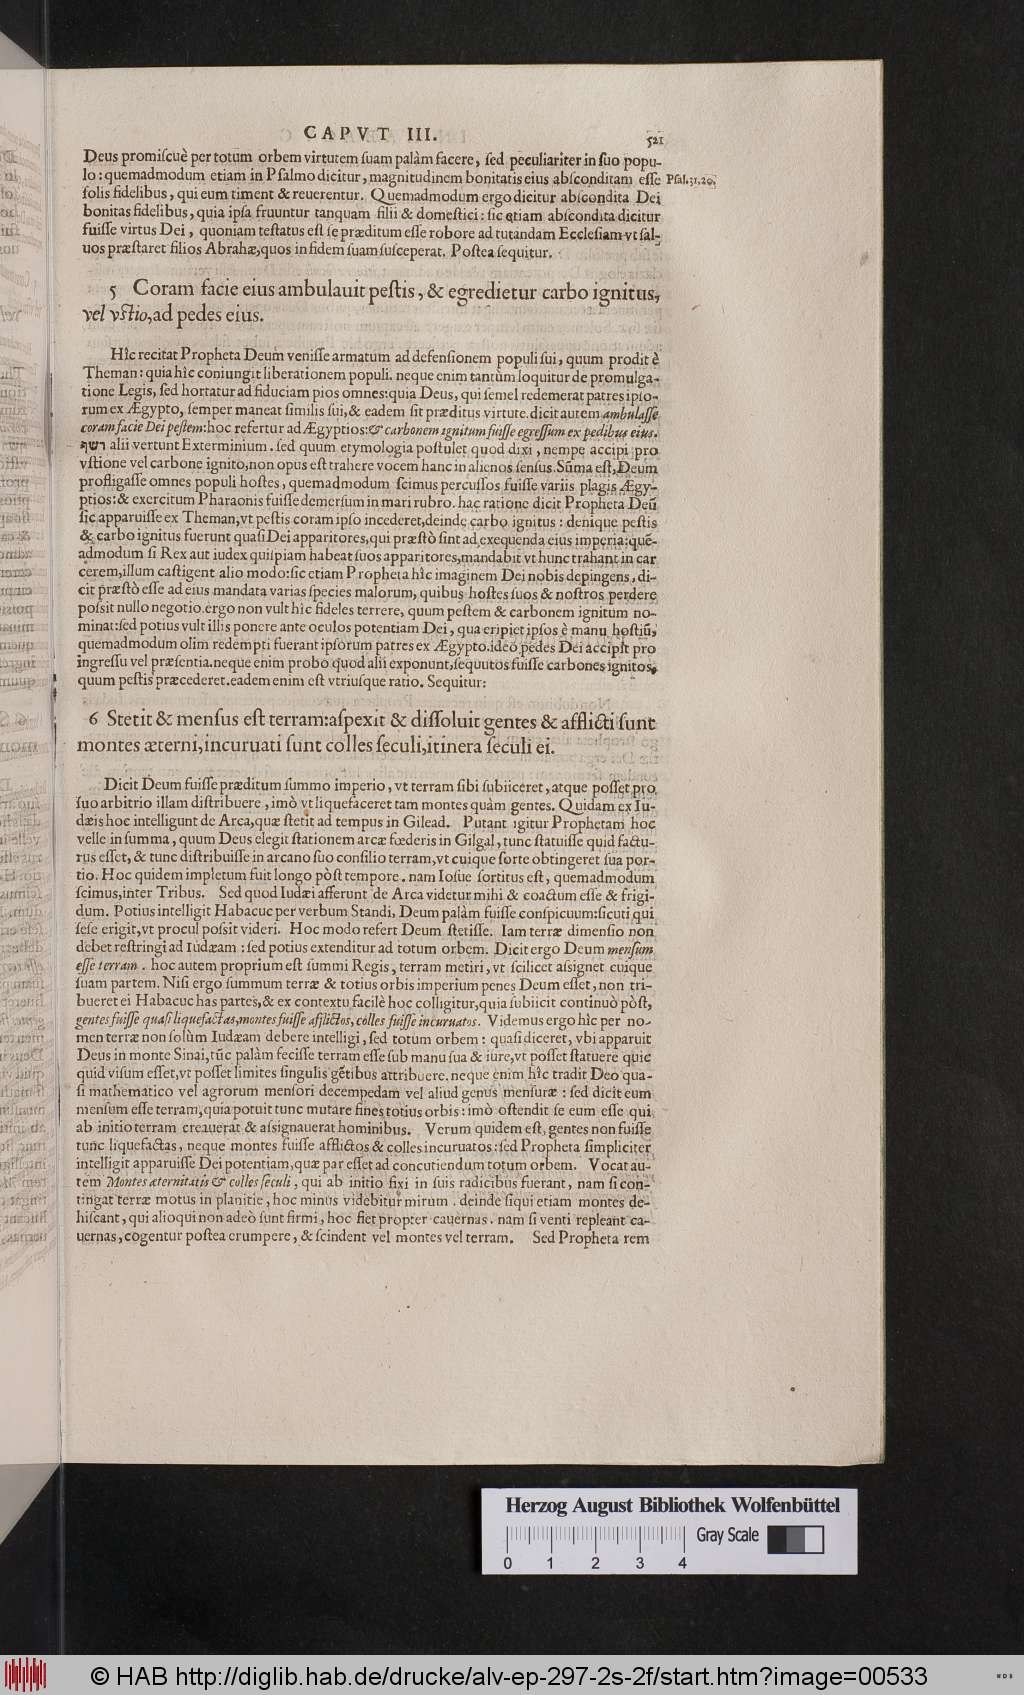 CAPVT III. 521
Deus promiſcuè per totum orbem virtutem ſuam palàm facere, ſed peculiariter in ſuo popu-
lo: quemadmodum etiam in Pſalmo dicitur, magnitudinem bonitatis eius abſconditam eſſe Pſal.31.20.
ſolis fidelibus, qui eum timent & reuerentur. Quemadmodum ergo dicitur abſcondita Dei
bonitas fidelibus, quia ipſa fruuntur tanquam filii & domeſtici: ſic etiam abſcondita dicitur
fuiſſe virtus Dei, quoniam teſtatus eſt ſe præditum eſſe robore ad tutandam Eccleſiam vt ſal-
uos præſtaret filios Abrahæ, quos in fidem ſuam ſuſceperat. Poſtea ſequitur.
5 Coram facie eius ambulauit peſtis, & egredietur carbo ignitus,
vel vſtio, ad pedes eius.
Hîc recitat Propheta Deum veniſſe armatum ad defenſionem populi ſui, quum prodit è
Theman: quia hîc coniungit liberationem populi. neque enim tantùm loquitur de promulga-
tione Legis, ſed hortatur ad fiduciam pios omnes: quia Deus, qui ſemel redemerat patres ipſo-
rum ex Ægypto, ſemper maneat ſimilis ſui, & eadem ſit præditus virtute. dicit autem ambulaſſe
coram facie Dei peſtem: hoc refertur ad Ægyptios: & carbonem ignitum fuiſſe egreſſum ex pedibus eius.
רשף alii vertunt Exterminium. ſed quum etymologia poſtulet quod dixi, nempe accipi pro
vſtione vel carbone ignito, non opus eſt trahere vocem hanc in alienos ſenſus. Sũma eſt, Deum
profligaſſe omnes populi hoſtes, quemadmodum ſcimus percuſſos fuiſſe variis plagis Ægy-
ptios: & exercitum Pharaonis fuiſſe demerſum in mari rubro. hac ratione dicit Propheta Deũ
ſic apparuiſſe ex Theman, vt peſtis coram ipſo incederet, deinde carbo ignitus: denique peſtis
& carbo ignitus fuerunt quaſi Dei apparitores, qui præſtò ſint ad exequenda eius imperia: quẽ-
admodum ſi Rex aut iudex quiſpiam habeat ſuos apparitores, mandabit vt hunc trahant in car
cerem, illum caſtigent alio modo: ſic etiam Propheta hîc imaginem Dei nobis depingens, di-
cit præſtò eſſe ad eius mandata varias ſpecies malorum, quibus hoſtes ſuos & noſtros perdere
poſsit nullo negotio. ergo non vult hîc fideles terrere, quum peſtem & carbonem ignitum no-
minat: ſed potius vult illis ponere ante oculos potentiam Dei, qua eripiet ipſos è manu hoſtiũ,
quemadmodum olim redempti fuerant ipſorum patres ex Ægypto. ideo pedes Dei accipit pro
ingreſſu vel præſentia. neque enim probo quod alii exponunt, ſequutos fuiſſe carbones ignitos,
quum peſtis præcederet. eadem enim eſt vtriuſque ratio. Sequitur:
6 Stetit & menſus eſt terram: aſpexit & diſſoluit gentes & afflicti ſunt
montes æterni, incuruati ſunt colles ſeculi, itinera ſeculi ei.
Dicit Deum fuiſſe præditum ſummo imperio, vt terram ſibi ſubiiceret, atque poſſet pro
ſuo arbitrio illam diſtribuere, imò vt liquefaceret tam montes quàm gentes. Quidam ex Iu-
dæis hoc intelligunt de Arca, quæ ſtetit ad tempus in Gilead. Putant igitur Prophetam hoc
velle in ſumma, quum Deus elegit ſtationem arcæ fœderis in Gilgal, tunc ſtatuiſſe quid factu-
rus eſſet, & tunc diſtribuiſſe in arcano ſuo conſilio terram, vt cuique ſorte obtingeret ſua por-
tio. Hoc quidem impletum fuit longo pòſt tempore. nam Ioſue ſortitus eſt, quemadmodum
ſcimus, inter Tribus. Sed quod Iudæi afferunt de Arca videtur mihi & coactum eſſe & frigi-
dum. Potius intelligit Habacuc per verbum Standi, Deum palàm fuiſſe conſpicuum: ſicuti qui
ſeſe erigit, vt procul poſsit videri. Hoc modo refert Deum ſtetiſſe. Iam terræ dimenſio non
debet reſtringi ad Iudæam: ſed potius extenditur ad totum orbem. Dicit ergo Deum menſum
eſſe terram. hoc autem proprium eſt ſummi Regis, terram metiri, vt ſcilicet aſsignet cuique
ſuam partem. Niſi ergo ſummum terræ & totius orbis imperium penes Deum eſſet, non tri-
bueret ei Habacuc has partes, & ex contextu facilè hoc colligitur, quia ſubiicit continuò pòſt,
gentes fuiſſe quaſi liquefactas, montes fuiſſe afflictos, colles fuiſſe incuruatos. Videmus ergo hîc per no-
men terræ non ſolùm Iudæam debere intelligi, ſed totum orbem: quaſi diceret, vbi apparuit
Deus in monte Sinai, tũc palàm feciſſe terram eſſe ſub manu ſua & iure, vt poſſet ſtatuere quic
quid viſum eſſet, vt poſſet limites ſingulis gẽtibus attribuere. neque enim hîc tradit Deo qua-
ſi mathematico vel agrorum menſori decempedam vel aliud genus menſuræ: ſed dicit eum
menſum eſſe terram, quia potuit tunc mutare fines totius orbis: imò oſtendit ſe eum eſſe qui
ab initio terram creauerat & aſsignauerat hominibus. Verum quidem eſt, gentes non fuiſſe
tunc liquefactas, neque montes fuiſſe afflictos & colles incuruatos: ſed Propheta ſimpliciter
intelligit apparuiſſe Dei potentiam, quæ par eſſet ad concutiendum totum orbem. Vocat au-
tem Montes æternitatis & colles ſeculi, qui ab initio fixi in ſuis radicibus fuerant, nam ſi con-
tingat terræ motus in planitie, hoc minus videbitur mirum. deinde ſiqui etiam montes de-
hiſcant, qui alioqui non adeò ſunt firmi, hoc fiet propter cauernas. nam ſi venti repleant ca-
uernas, cogentur poſtea erumpere, & ſcindent vel montes vel terram. Sed Propheta rem
Herzog August Bibliothek Wolfenbüttel
Gray Scale
0 1 2 3 4
© HAB http://diglib.hab.de/drucke/alv-ep-297-2s-2f/start.htm?image=00533